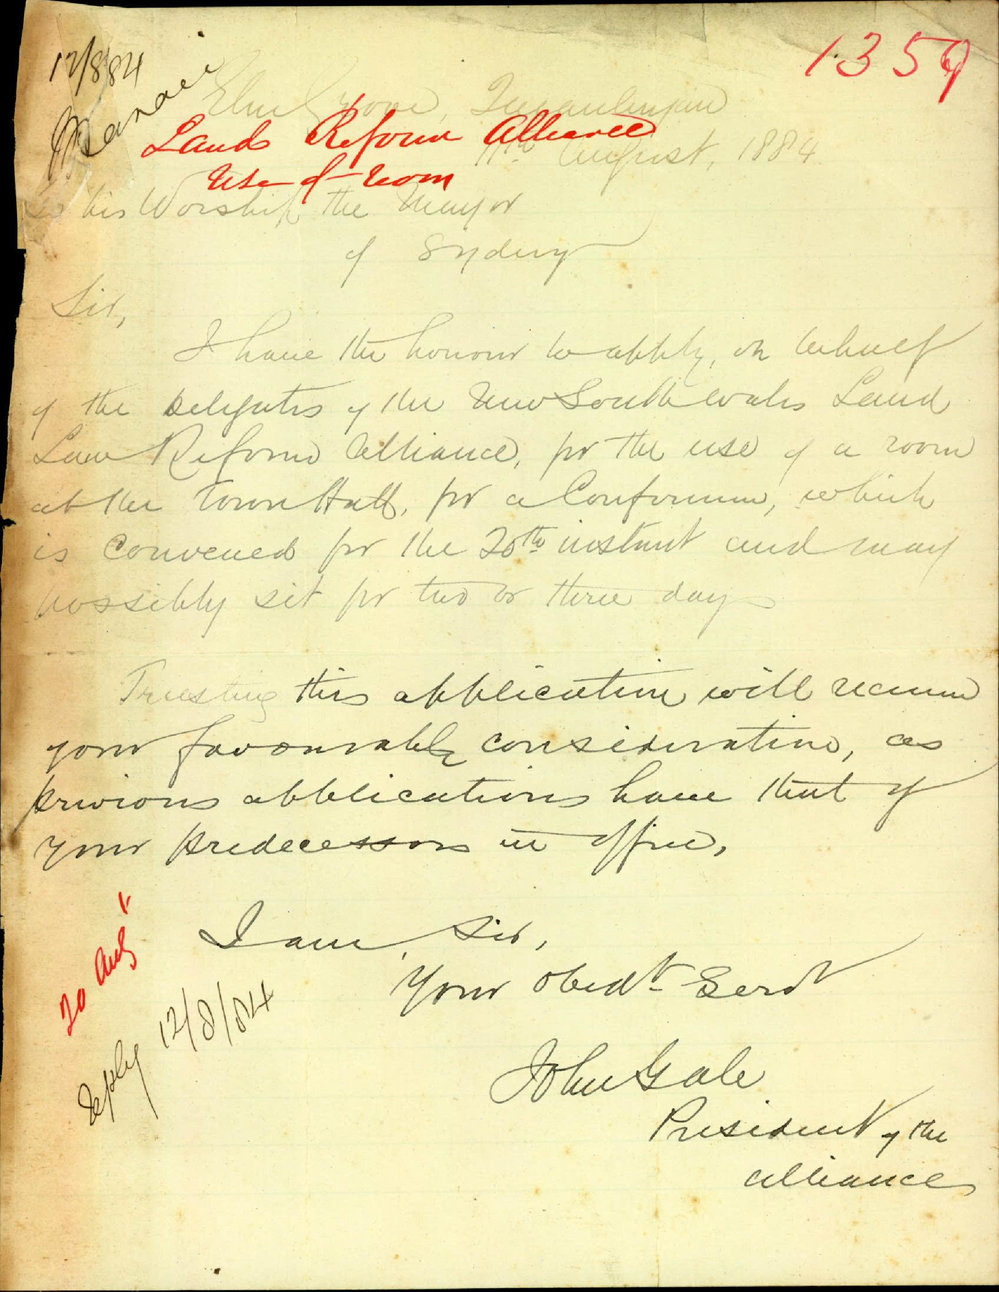 12/8/84
1359
Elm Grove, Queanbeyan
Lands Reform Alliance
11th August, 1884
Use of room
To his Worship the Mayor
of Sydney
Sir,
I have the honour to apply, on behalf
of the Delegates of the New South Wales Land
Law Reform Alliance, for the use of a room
at the Town Hall, for a Conference, which
is convened for the 20th instant and may
possibly sit for two or three days
Trusting this application will receive
your favourable consideration, as
previous applications have that of
your predecessors in office,
I am, Sir,
Your obedt Servt
John Gale
President of the
Alliance
20 Aug
Reply 12/8/84